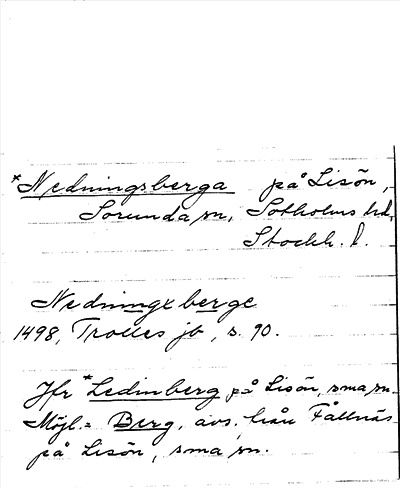 *Nedningsberga på Lisön,
Sorunda sn, Sotholms hd,
Stockh. l.
Nedningx berge
1498, Trolles jb, s. 90.
Jfr *Ledinberg på Lisön, sma sn.
Möjl. = Berg, avs. från Fållnäs
på Lisön, sma sn.